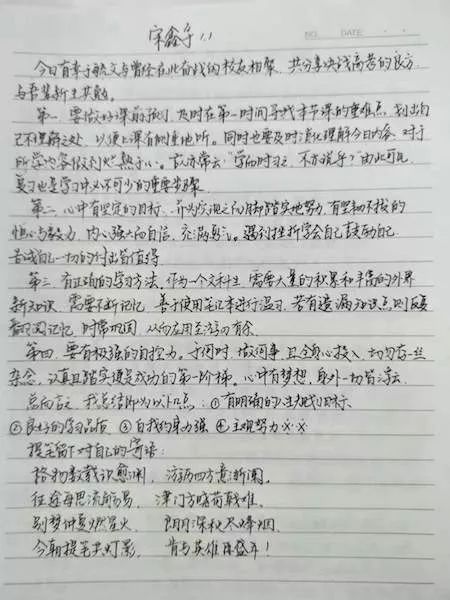 宋鑫宇 1.1
NO.    DATE
今日有幸于航文与曾经在此奋战的校友相聚,共分享决战高考的良方,
与吾辈新生共勉。
第一,要做好课前预习,及时在第一时间寻找本节课的重难点,划出自
己不理解之处,以便上课有侧重地听。同时也要及时消化理解今日内容,对于
所学内容做到烂熟于心。古亦常云:"学而时习之,不亦说乎?"由此可见
复习也是学习中必不可少的重要步骤。
第二,心中有坚定的目标,并为实现之而脚踏实地努力,有坚韧不拔的
恒心与毅力,内心强大而自信,充满勇气。遇到挫折学会自己鼓励自己
告诫自己一切的付出皆值得
第三,有正确的学习方法,作为一个文科生,需要大量的积累和丰富的外界
新知识,需要不断记忆,善于使用笔记本进行温习,若有遗漏知识点则反复
翻阅记忆,时常巩固,从而在用至方可有余
第四,要有极强的自控力。于何时,做何事,且全身心投入,切勿有一丝
杂念,认真且踏实便是成功的第一阶梯。心中有梦想,身外一切皆浮云
总而言之,我总结归为以下几点:①有明确的人生规划目标
②良好的学习品质 ③自我约束力强 ④主观努力
提笔留下对自己的寄语:
格物数载识愈渊,游历四方意渐阑。
征途每思流易,津门方晓荷戟难。
别梦仲夏燃星火,朗月深秋尽烽烟。
今朝提笔共灯影,肯与英雄再盛年!